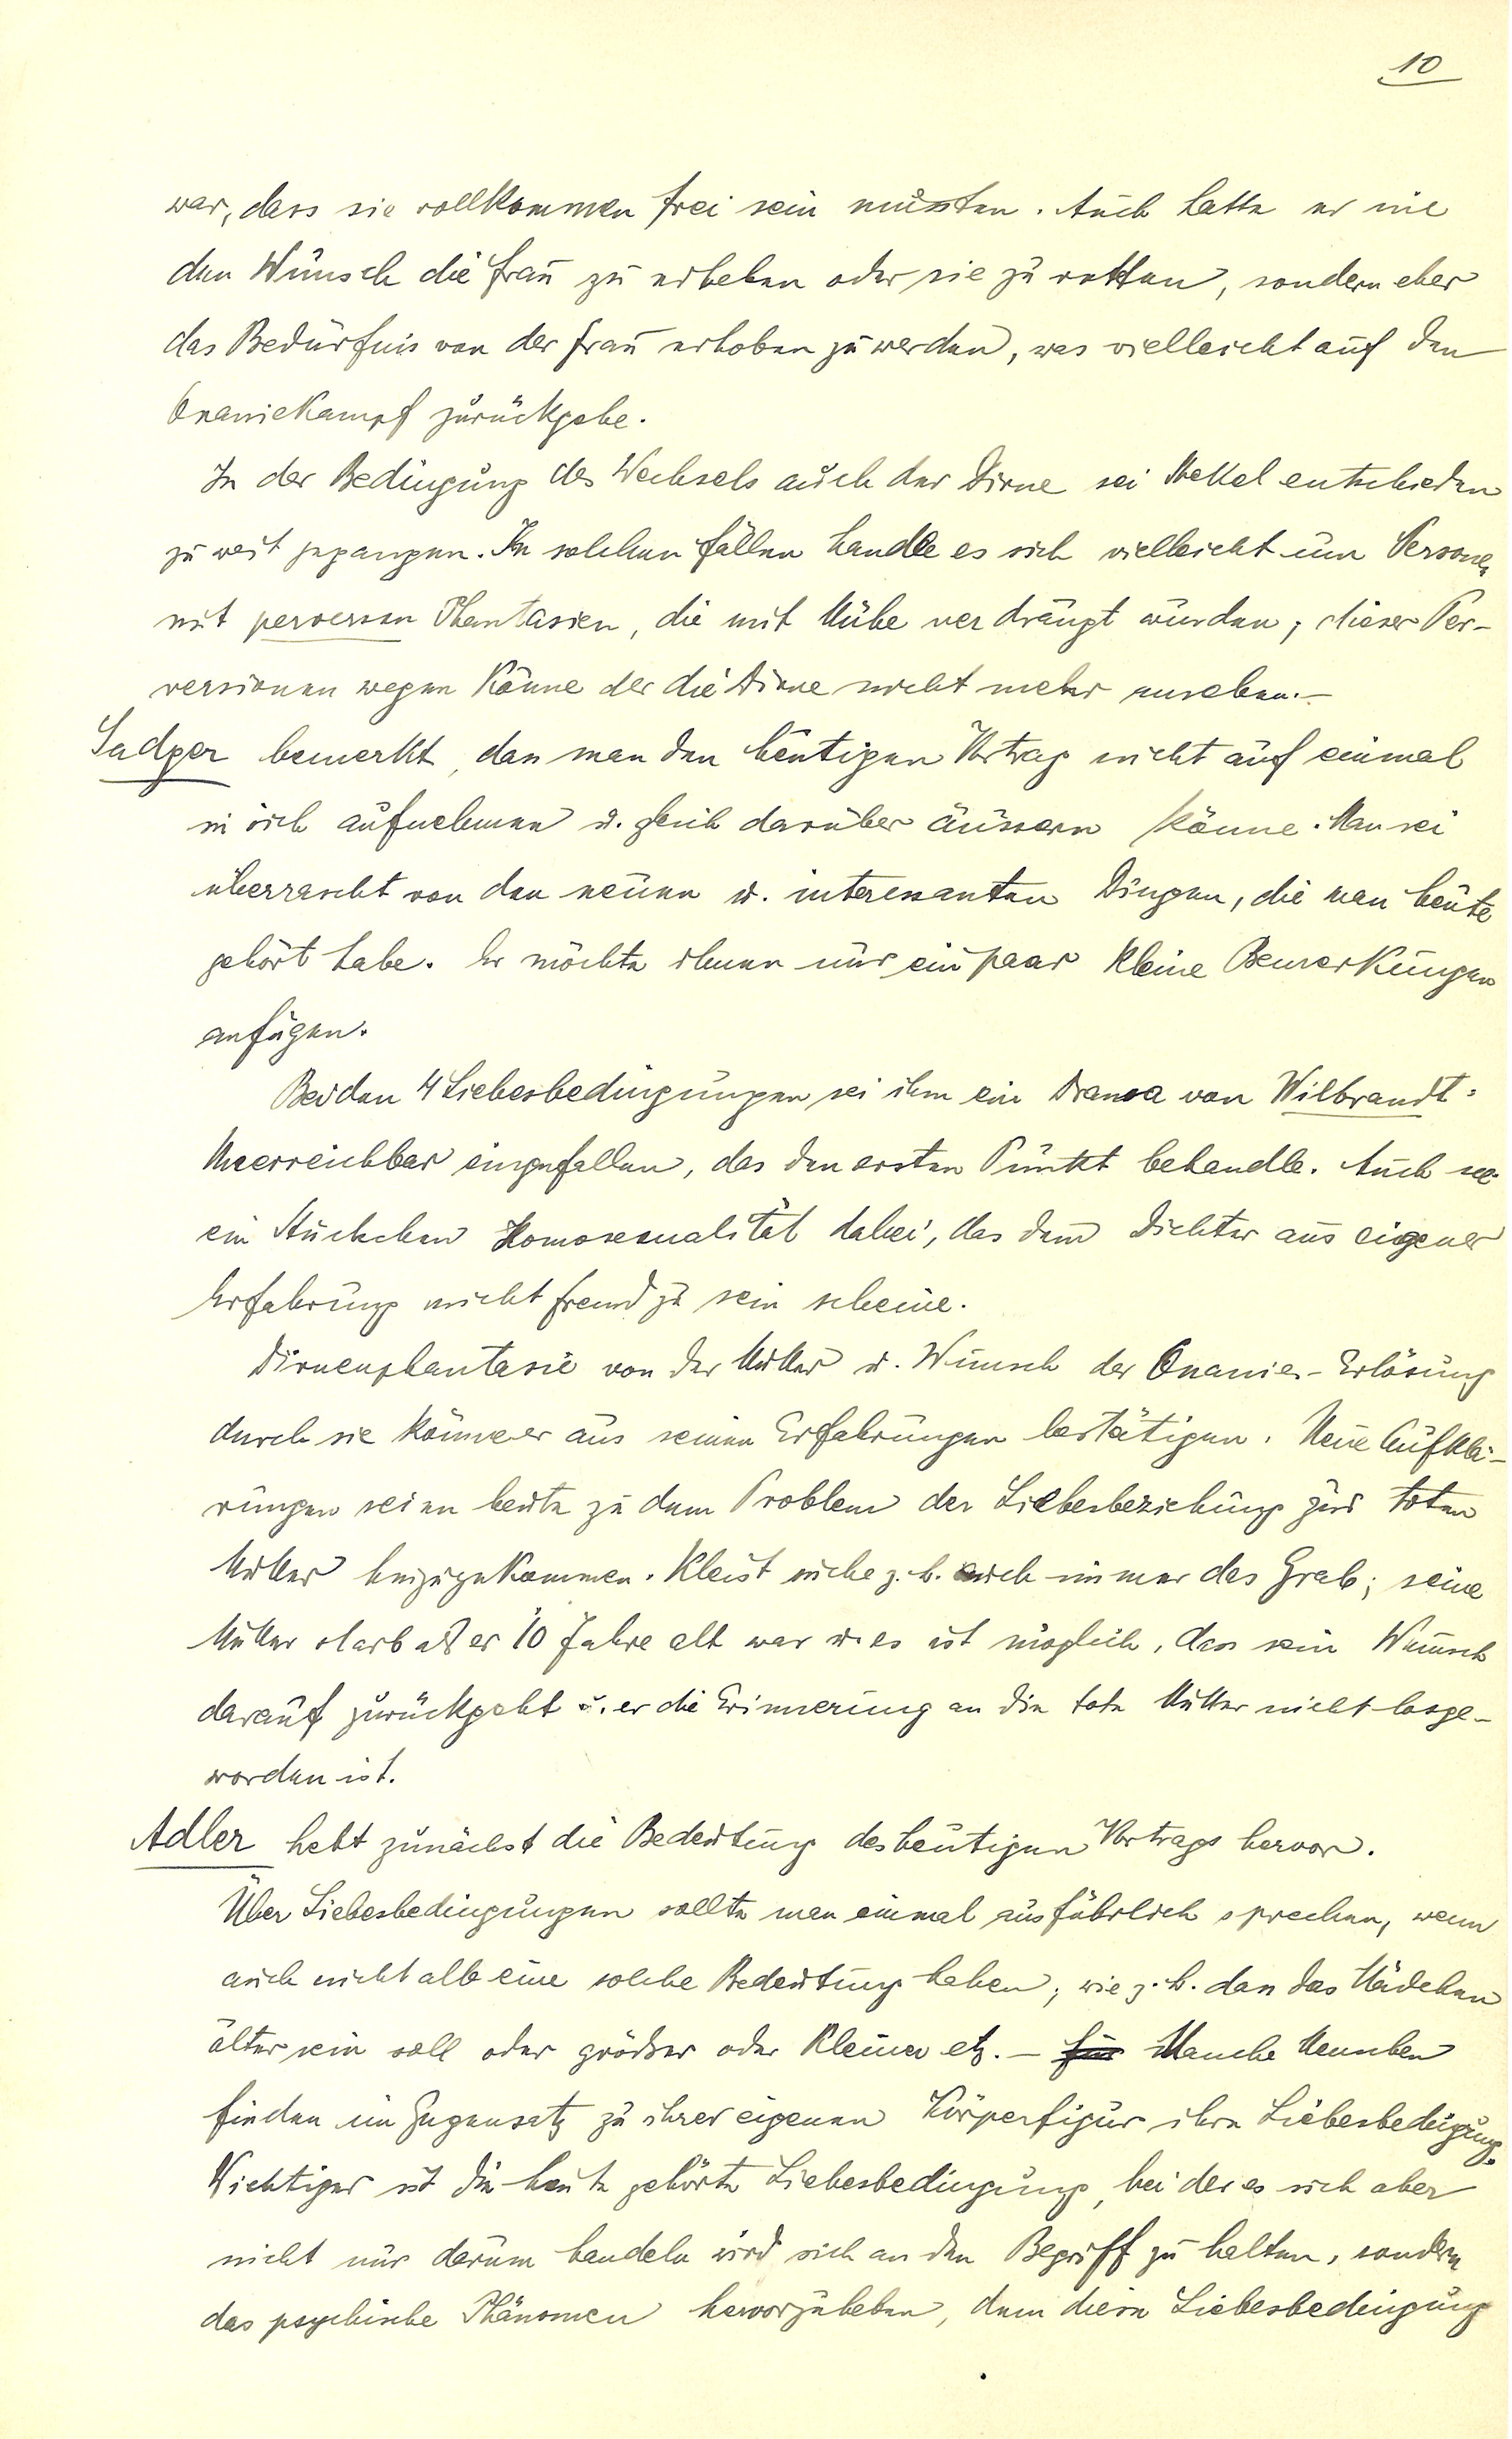 10
war, dass sie vollkommen frei sein mussten. Auch hatte er nie
den Wunsch die Frau zu erheben oder sie zu retten, sondern eher
das Bedürfnis von der Frau erhoben zu werden, was vielleicht auf den
Onaniekampf zurückgehe.
In der Bedingung des Wechsels auch der Dirne sei Stekel entschieden
zu weit gegangen. In solchen Fällen handle es sich vielleicht um Personen
mit perversen Phantasien, die mit Mühe verdrängt wurden; dieser Per-
versionen wegen könne der die Dirne nicht mehr ansehen.-
Sadger bemerkt, dass man den heutigen Vortrag nicht auf einmal
in sich aufnehmen u. gleich darüber äussern könne. Man sei
überrascht von den neuen u. interessanten Dingen, die man heute
gehört habe. Er möchte ihnen nur ein paar kleine Bemerkungen
anfügen.
Bei den 4 Liebesbedingungen sei ihm ein Drama von Wilbrandt:
Unerreichbar eingefallen, das den ersten Punkt behandle. Auch sei
ein Stückchen Homosexualität dabei, das dem Dichter aus eigener
Erfahrung nicht fremd zu sein scheine.
Dirnenphantasie von der Mutter u. Wunsch der Onanie-Erlösung
durch sie könne er aus seinen Erfahrungen bestätigen. Neue Aufklä-
rungen seien heute zu dem Problem der Liebesbeziehung zur toten
Mutter hinzugekommen. Kleist suche z.b. auch immer das Grab; seine
Mutter starb als er 10 Jahre alt war u. es ist möglich, dass sein Wunsch
darauf zurückgeht u. er die Erinnerung an die tote Mutter nicht losge-
worden ist.
Adler hebt zunächst die Bedeutung des heutigen Vortrags hervor.
Über Liebesbedingungen sollte man einmal ausführlich sprechen, wenn
auch nicht alle eine solche Bedeutung haben; wie z.b. dass das Mädchen
älter sein soll oder grösser oder kleiner etz. - für Manche Menschen
finden im Gegensatz zu ihrer eigenen Körperfigur ihre Liebesbedingung.
Wichtiger ist die heute gehörte Liebesbedingung, bei der es sich aber
nicht nur darum handeln wird sich an den Begriff zu halten, sondern
das psychische Phänomen hervorzuheben, dem diese Liebesbedingung